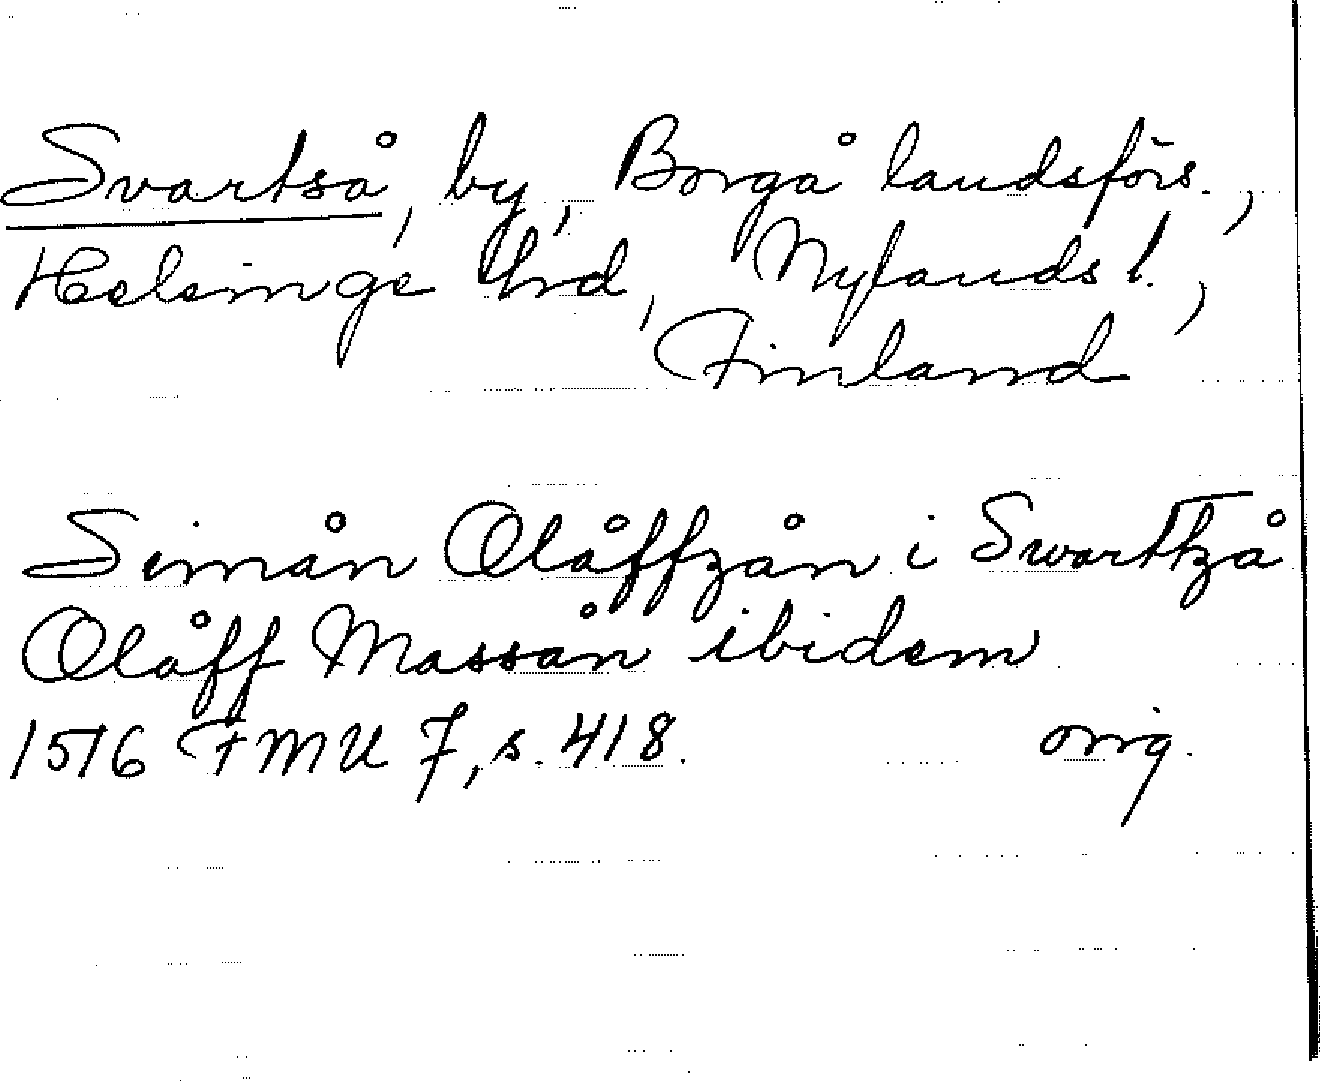 Svartså, by, Borgå landsförs.,
Helsinge hrd, Nylands l.,
Finland
Simån Olåffzån i Swartkzå
Olåff Massån ibidem
1516 FMU 7, s. 418. orig.